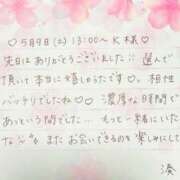 ♡5月9日(土)13:00〜K様♡
先日はありがとうございました!!選んで
頂いて本当に嬉しかったです♡。相性
バッチリでしたね♡♡濃厚な時間で
あっという間でした…もっと一緒にいた
な〜またお会いできるのを楽しみにして
湊